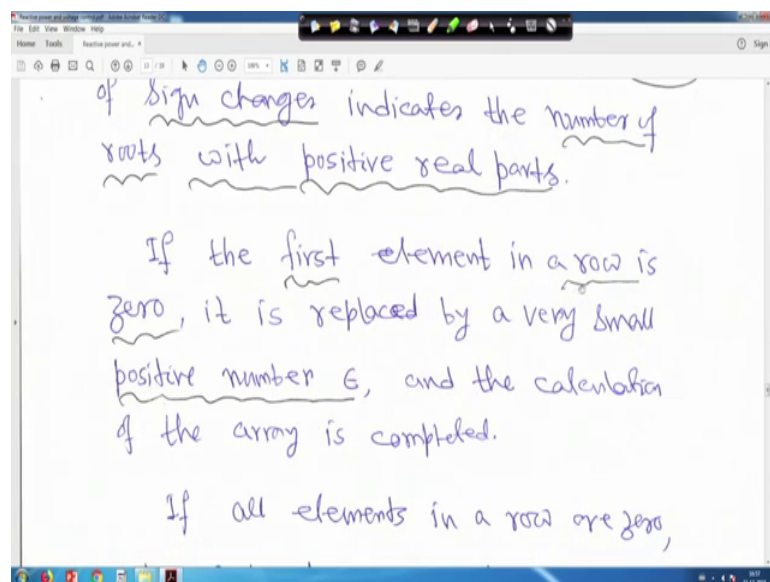 Reactive power and voltage control.pdf - Adobe Acrobat Reader DC
File Edit View Window Help
Home Tools Reactive power and... ×
Sign
of sign changes indicates the number of
roots with positive real parts.
If the first element in a row is
zero, it is replaced by a very small
positive number ϵ, and the calculation
of the array is completed.
If all elements in a row are zero,